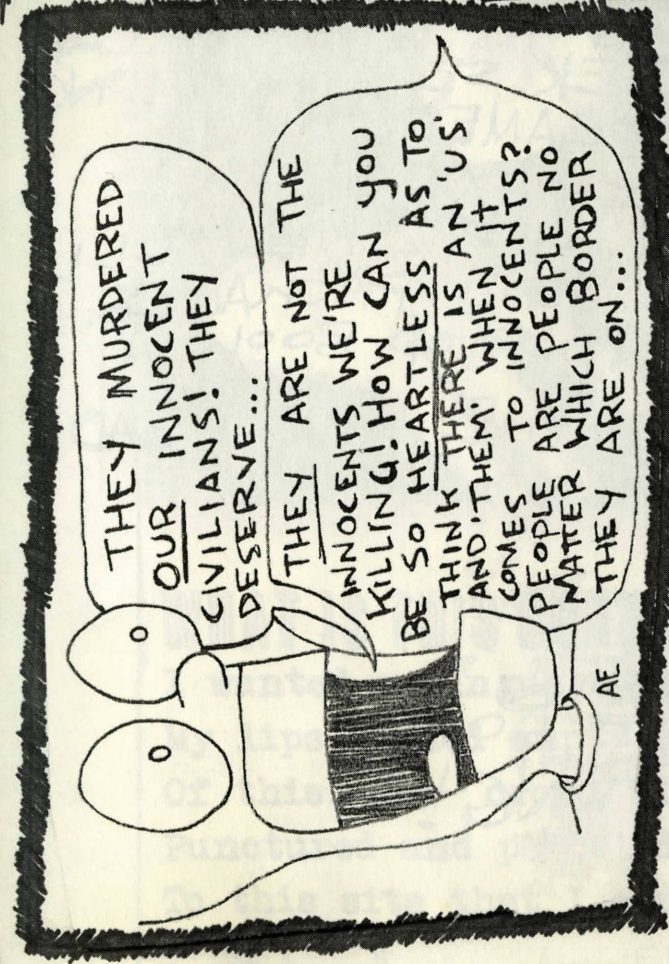 THEY MURDERED
OUR INNOCENT
CIVILIANS! THEY
DESERVE...
THEY ARE NOT THE
INNOCENTS WE'RE
KILLING! HOW CAN YOU
BE SO HEARTLESS AS TO
THINK THERE IS AN 'US'
AND 'THEM' WHEN IT
COMES TO INNOCENTS?
PEOPLE ARE PEOPLE NO
MATTER WHICH BORDER
THEY ARE ON...
AE
I wanted
My lips
Of this
Punctured and
To this site that I